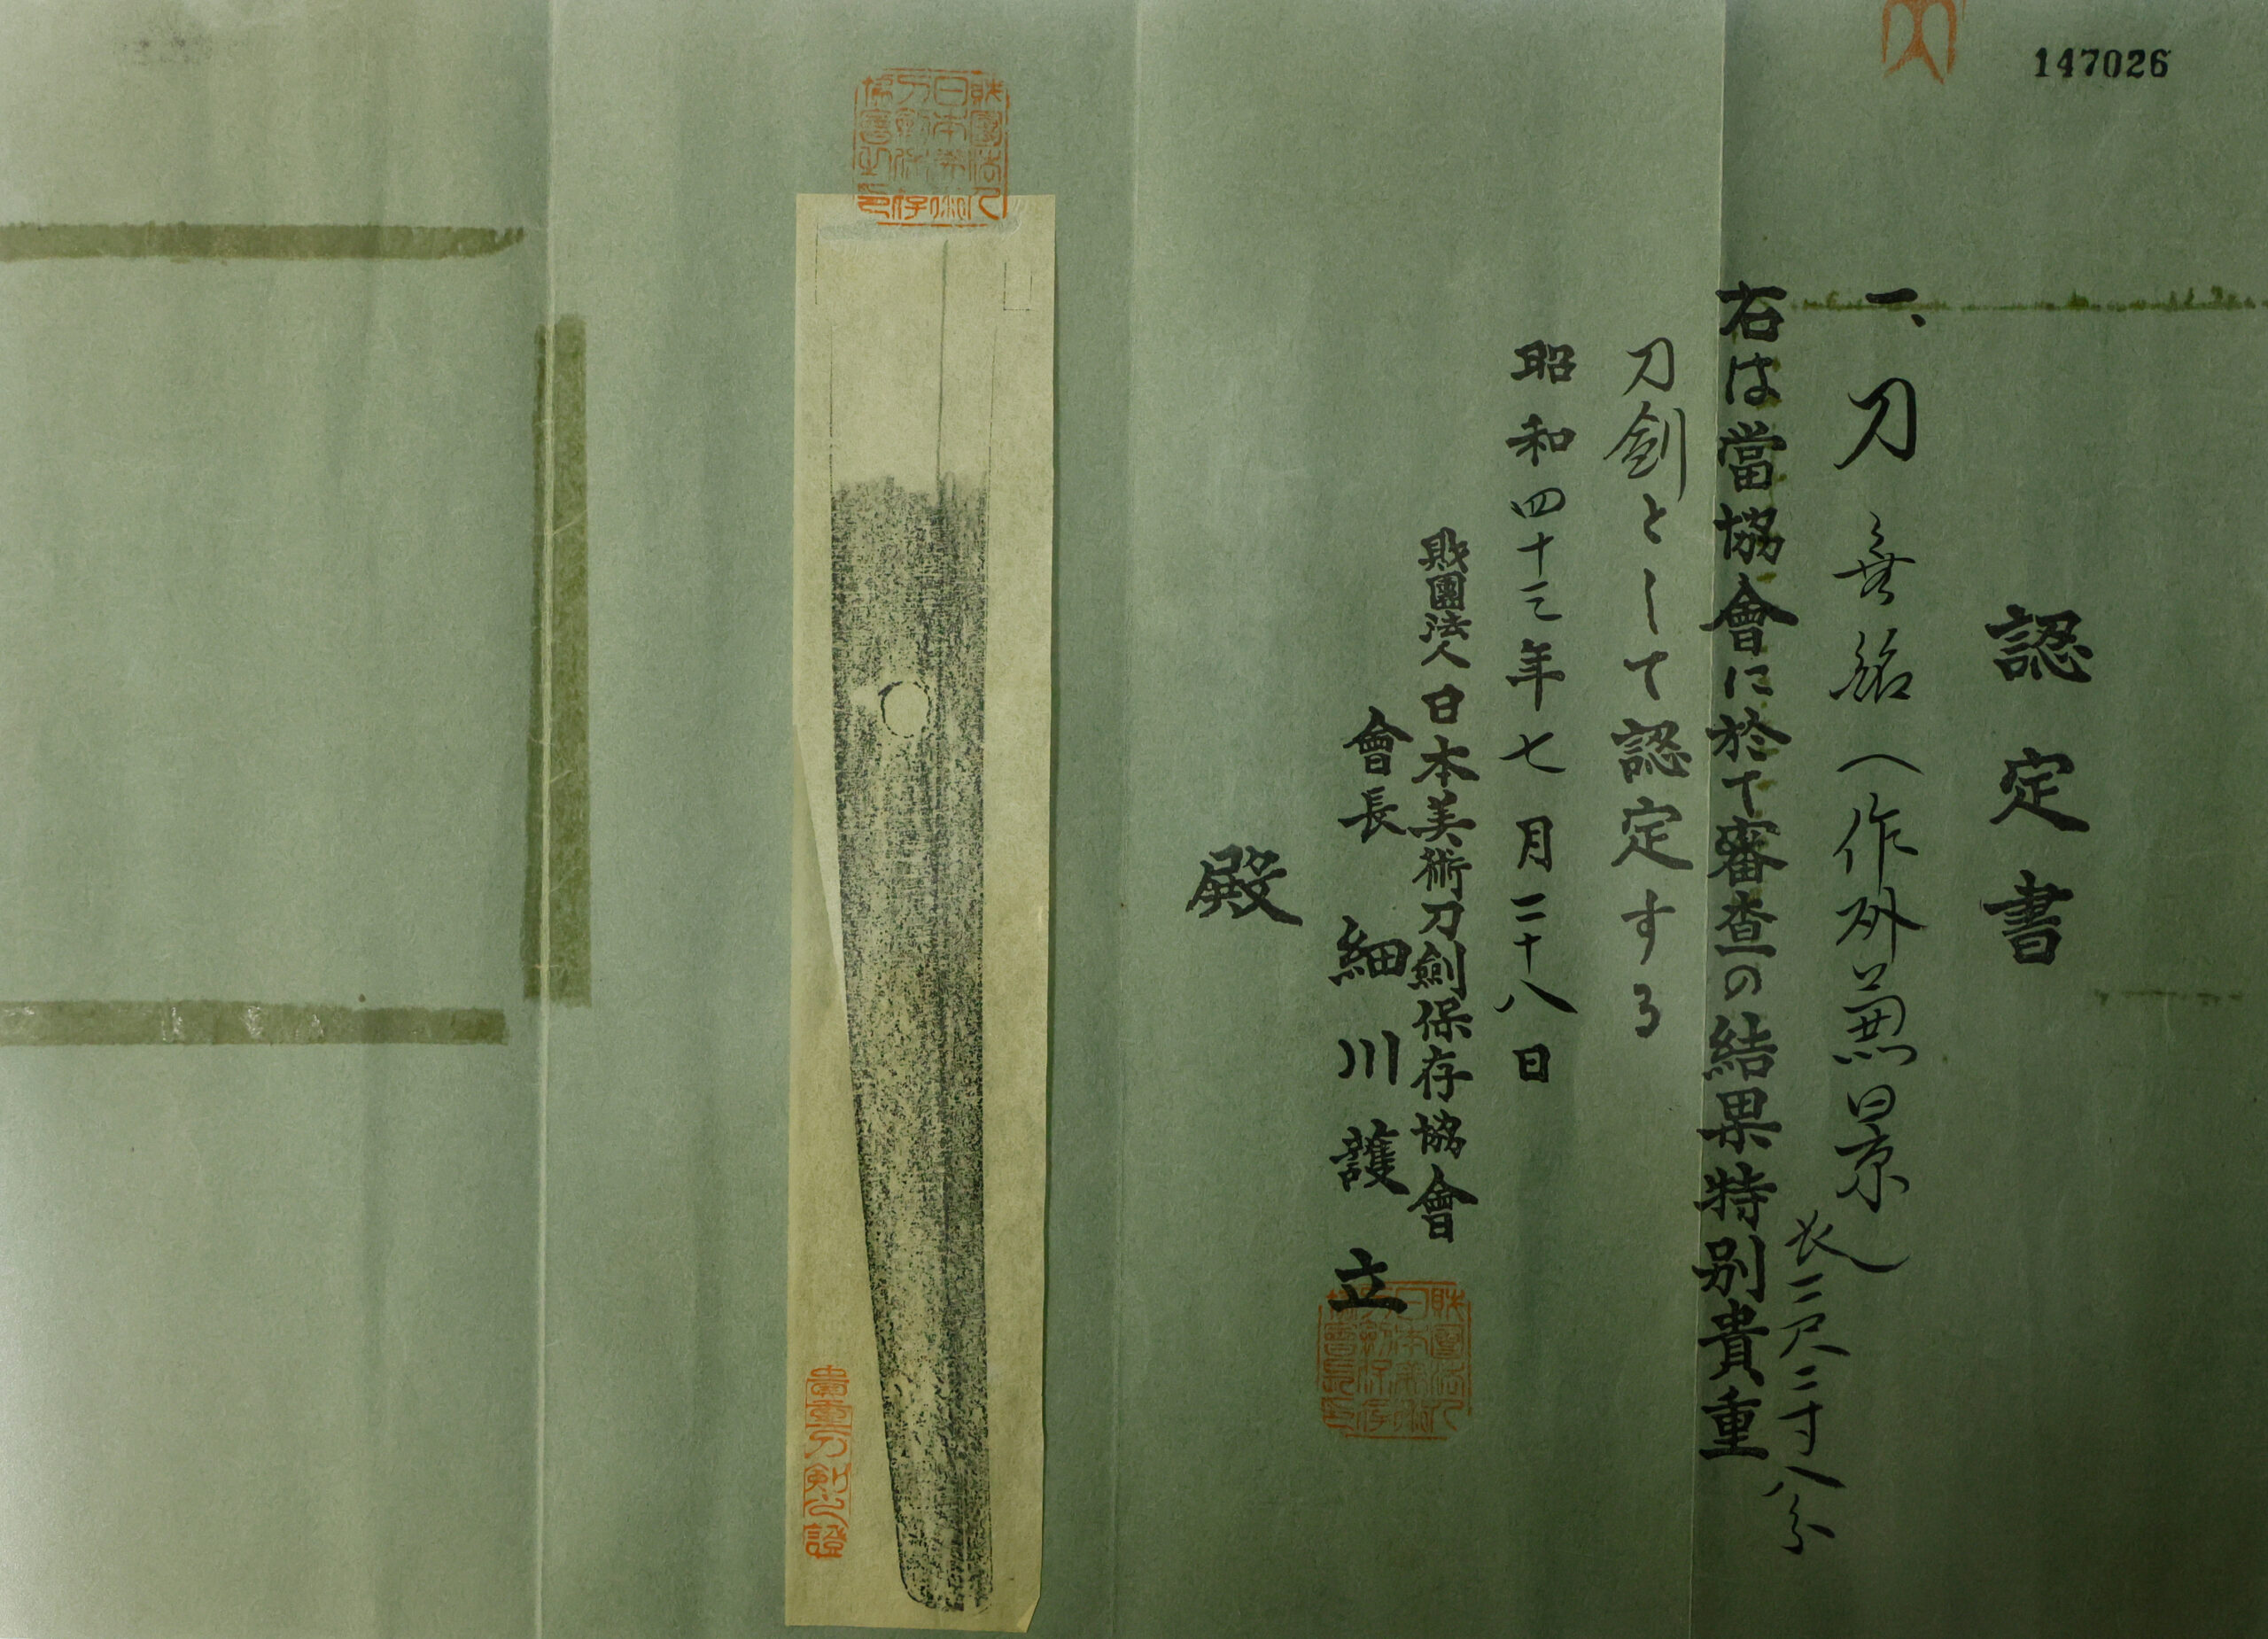 147026
認定書
一、刀 無銘（作州兼景）
長二尺二寸八分
右は當協會に於て審査の結果特別貴重
刀劍として認定する
昭和四十三年七月二十八日
財團法人日本美術刀劍保存協會
會長 細川護立
財團法人日本美術刀劍保存協會長印
殿
財團法人日本美術刀劍保存協會之印
貴重刀劍之證